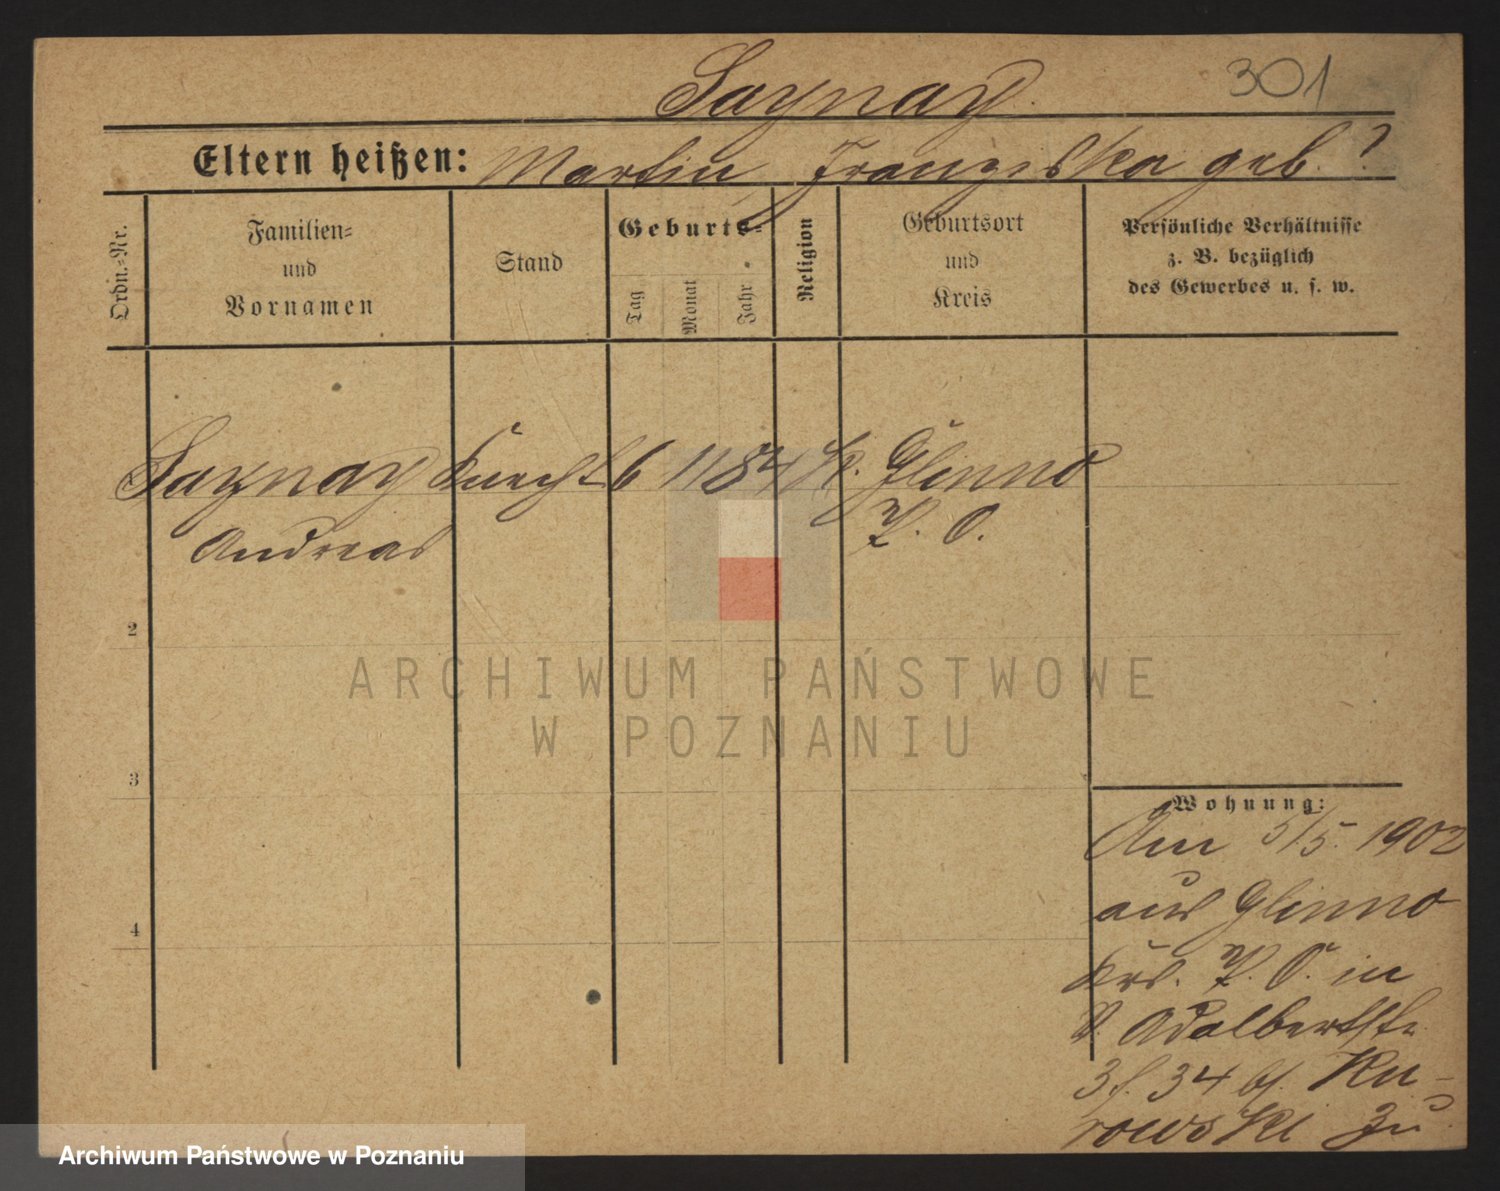 Saynay. 301
Eltern heißen: Martin Franziska geb. ?
Ordn.-Nr.
Familien-
und
Vornamen
Stand
Geburts-
Tag
Monat
Jahr
Religion
Geburtsort
und
Kreis
Persönliche Verhältnisse
z. B. bezüglich
des Gewerbes u. s. w.
Saynay Knecht 6 11 84 K. Glinno
Andreas P. O.
2
3
4
Wohnung:
Am 5/5. 1902
aus Glinno
Krs. P. O. in
Adalbertstr.
34 Ku-
rowski zu
ARCHIWUM PAŃSTWOWE
W POZNANIU
Archiwum Państwowe w Poznaniu